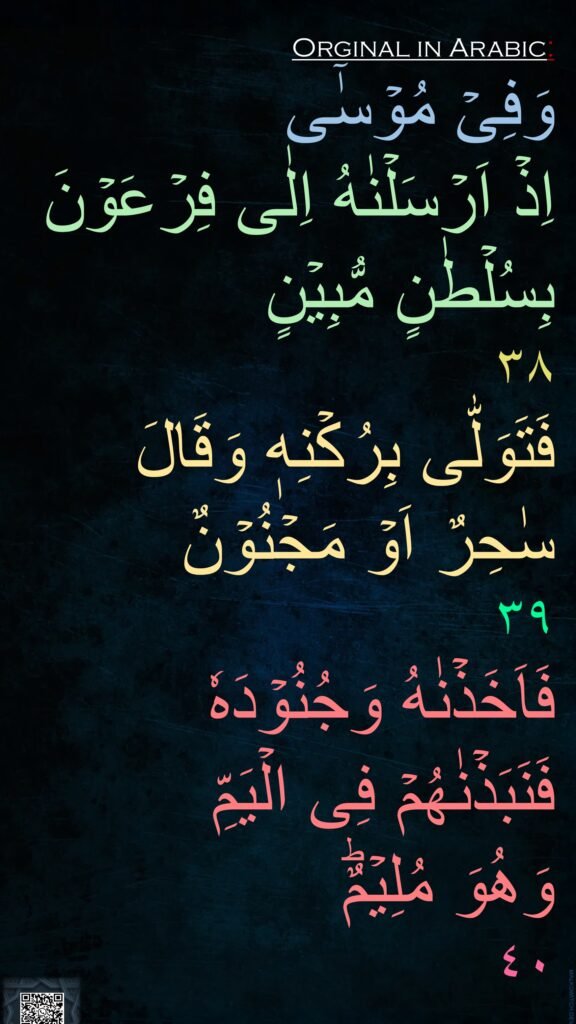 Orginal in Arabic:
وَفِىۡ مُوۡسٰٓى
اِذۡ اَرۡسَلۡنٰهُ اِلٰى فِرۡعَوۡنَ
بِسُلۡطٰنٍ مُّبِيۡنٍ
٣٨
فَتَوَلّٰى بِرُكۡنِهٖ وَقَالَ
سٰحِرٌ اَوۡ مَجۡنُوۡنٌ
٣٩
فَاَخَذۡنٰهُ وَجُنُوۡدَهٗ
فَنَبَذۡنٰهُمۡ فِى الۡيَمِّ
وَهُوَ مُلِيۡمٌؕ
٤٠